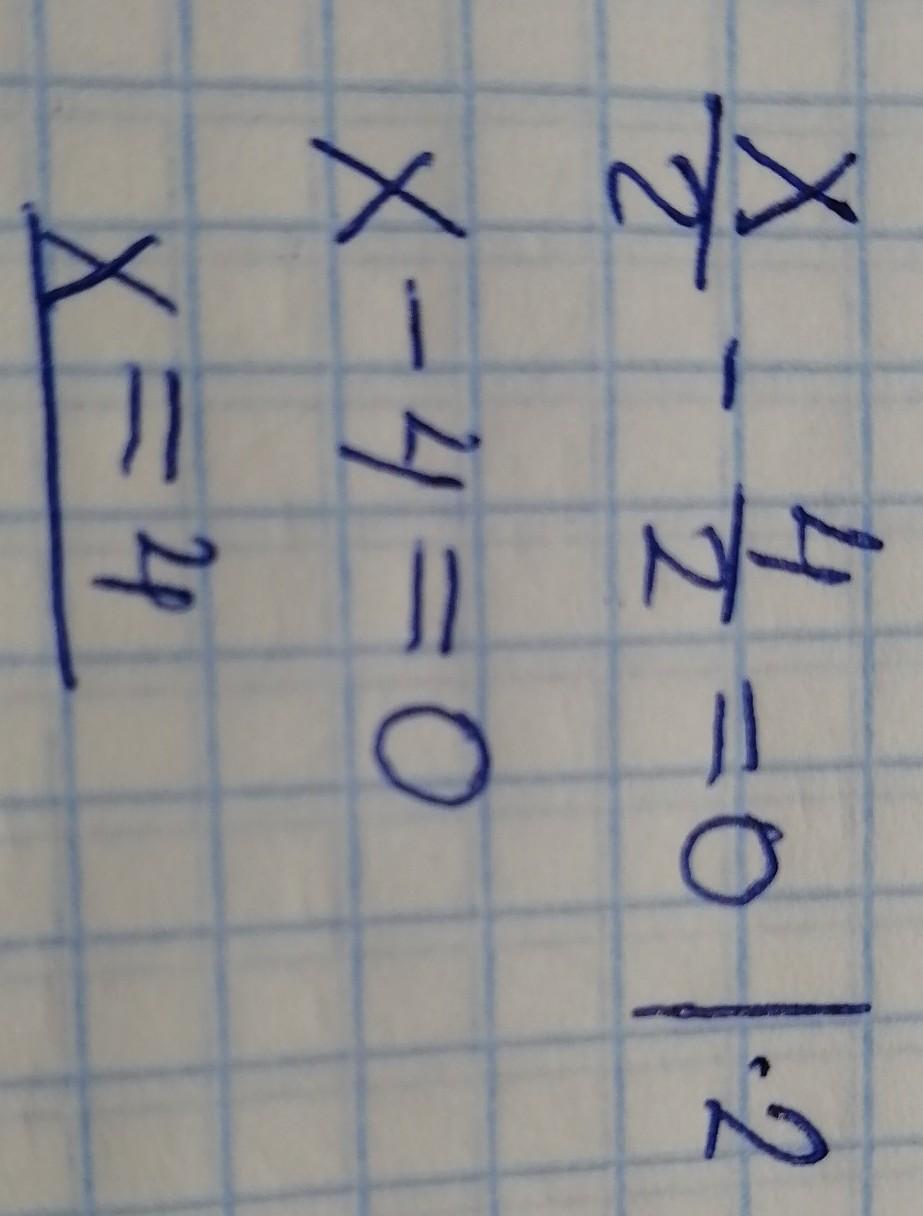 x/2 - 4/2 = 0 | · 2
x - 4 = 0
x = 4